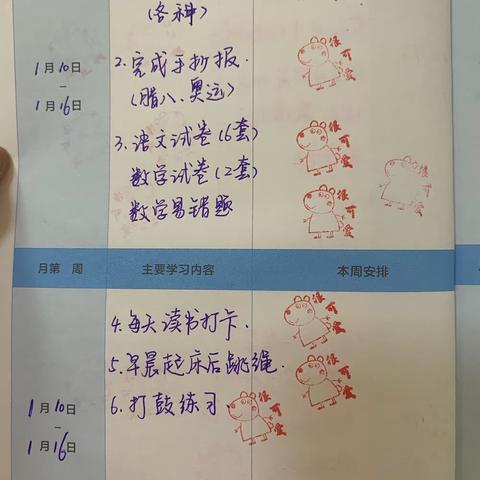 (各科)
1月10日
—
1月16日
2.完成手抄报.
(腊八、奥运)
很可爱
3.语文试卷(6套)
很可爱
数学试卷(2套)
很可爱
数学易错题
很可爱
月第 周 主要学习内容 本周安排
4.每天读书打卡.
很可爱
5.早晨起床后跳绳.
很可爱
1月10日
—
1月16日
6.打鼓练习
很可爱